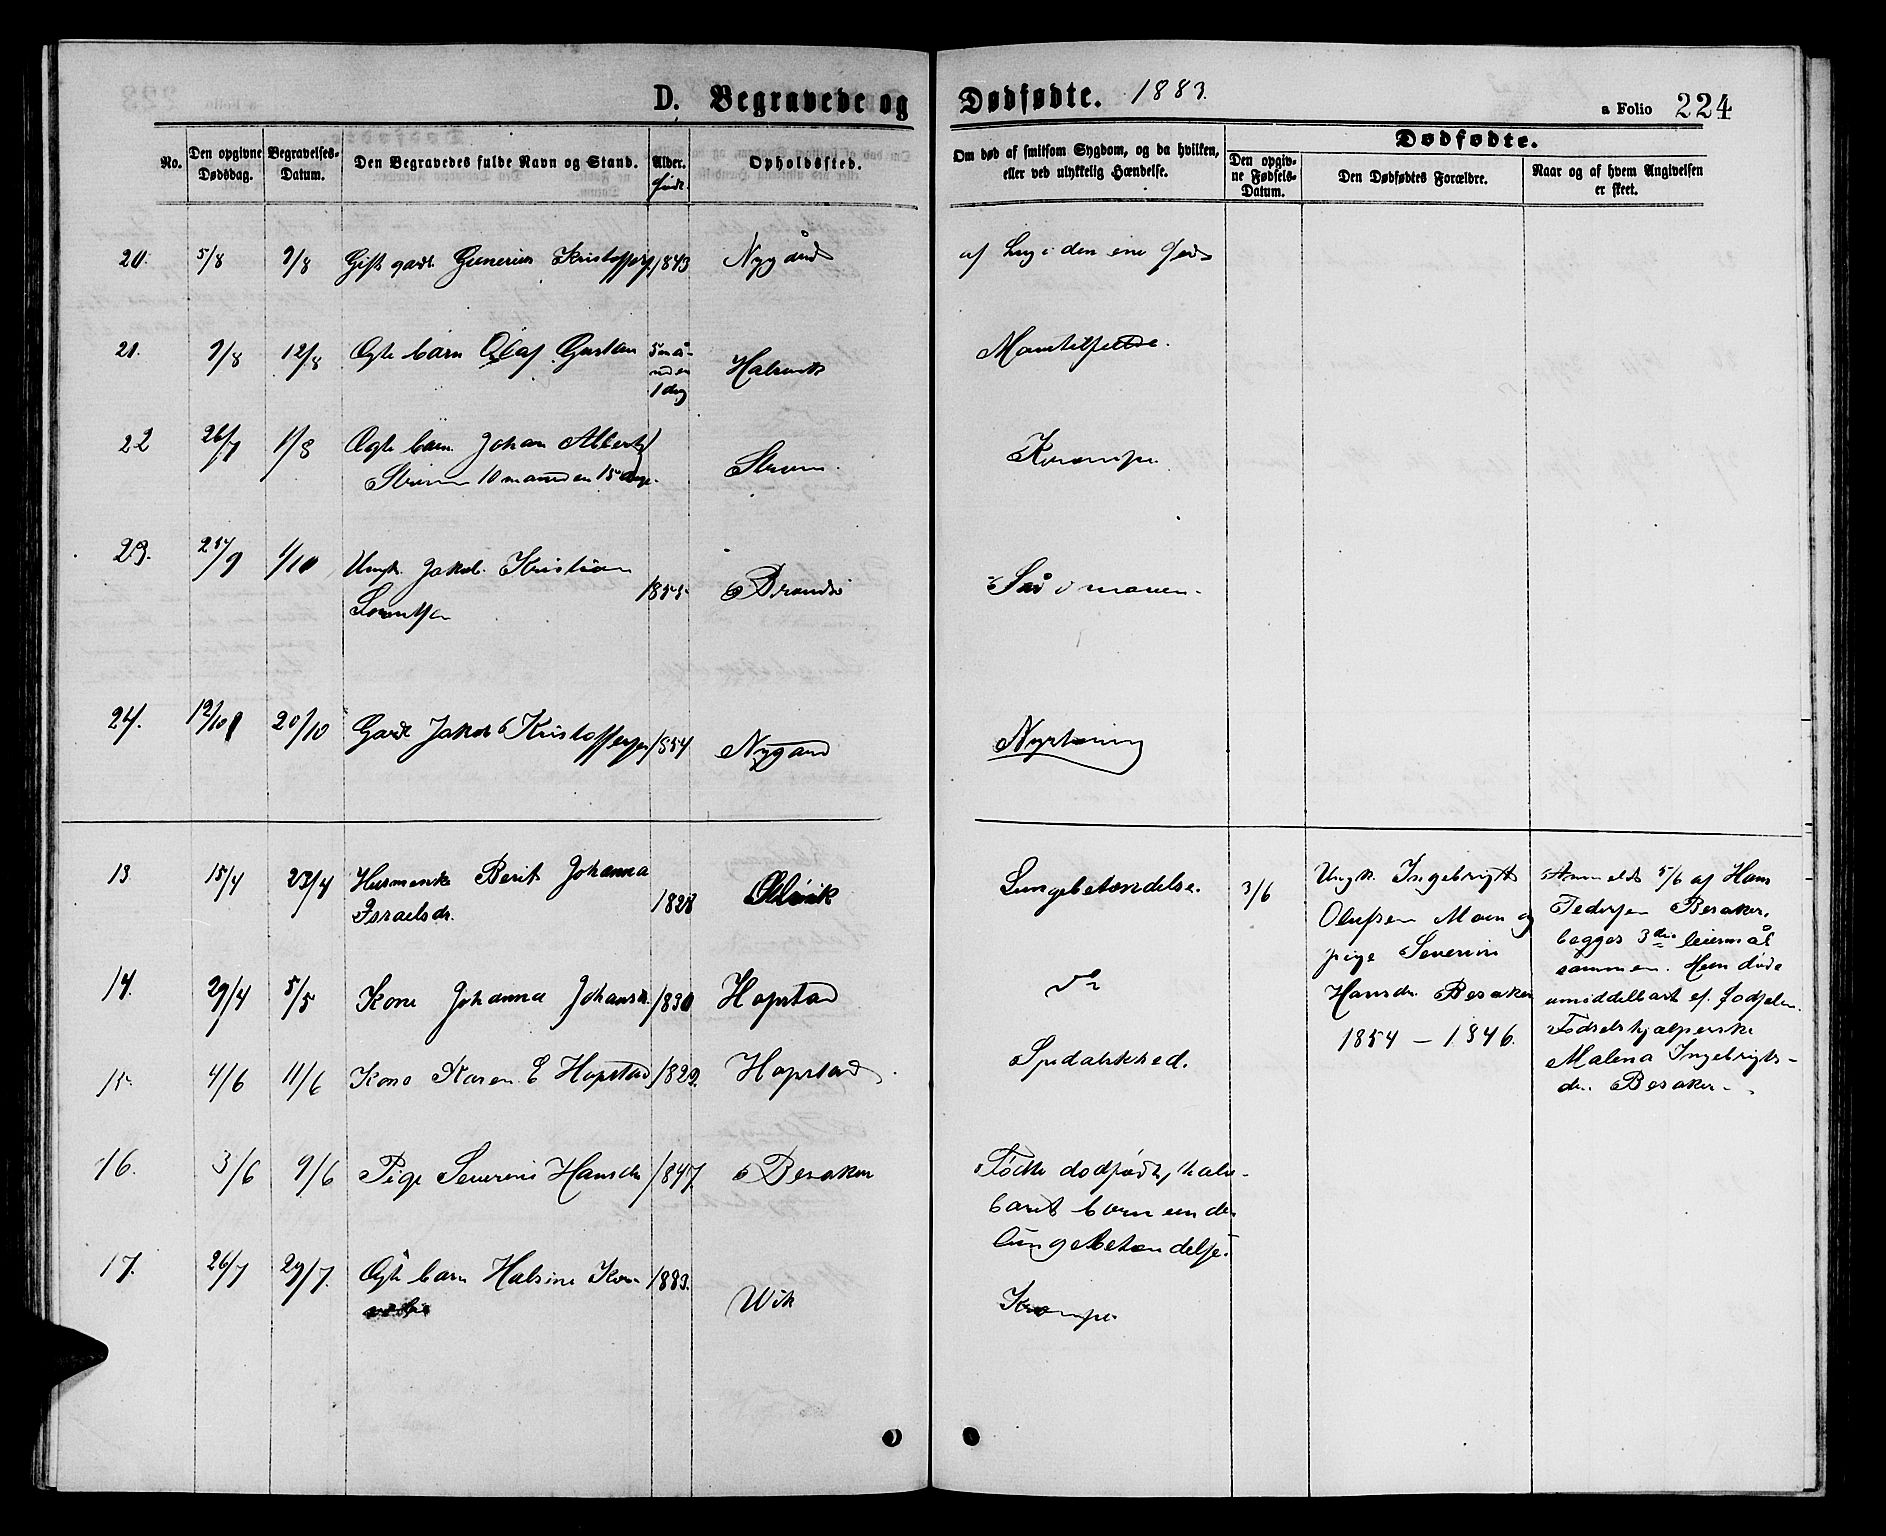 D. Begravede og Dødfødte. 1883.
a Folio 224
No.
Den opgivne Dødsdag.
Begravelses-Datum.
Den Begravedes fulde Navn og Stand.
Alder.
Født.
Opholdssted.
Om død af smitsom Sygdom, og da hvilken, eller ved ulykkelig Hændelse.
Dødfødte.
Den opgivne Fødsels-Datum.
Den Dødfødtes Forældre.
Naar og af hvem Angivelsen er skeet.
20. 5/8 9/8 Gift gadr. Gunerius 1843 Nygård
af i den ene
21. 9/8 12/8 Ægte barn Olaf Gustav 5 må-
neder
1 dag
22 26/7 1/8 Ægte barn Johan Albert
Strøm 10 maaneder 15 dage. Strøm. Krampe
23. 25/9 1/10 Ungk. Jakob Kristian
Lorentsen 1855 Brandsø Sår i maven.
24. 12/10 20/10 Gadr Jakob Kristoffersen 1854 Nygaard Nyrtæring
13 15/4 23/4 Husmenske Berit Johanna
Israelsdr. 1828 Lungebetændelse.
14. 29/4 5/5 Kone Johanna Johansdr. 1830 Hopstad do
15. 4/6 11/6 Kone Karen E Hopstad 1829. Hopstad Spedalskhed.
16. 3/6 9/6 Pige Severine Hansdr 1847. Besaker
Fødte dødfødt,
barnet barn under
lungebetændelse.
17. 26/7 29/7. Ægte barn Halsine
1883. Wik Krampe
3/6
Ungk. Ingebrigt
Olufsen Moen og
pige Severine
Hansdr. Besaker
1854 – 1846.
Anmeldt 5/6 af Hans
Pedersen Besaker.
begges 3die leiermål
sammen. Hun døde
umiddelbart ef. fødselen.
Fødselshjælperske
Malena Ingebrigts-
dr. Besaker.